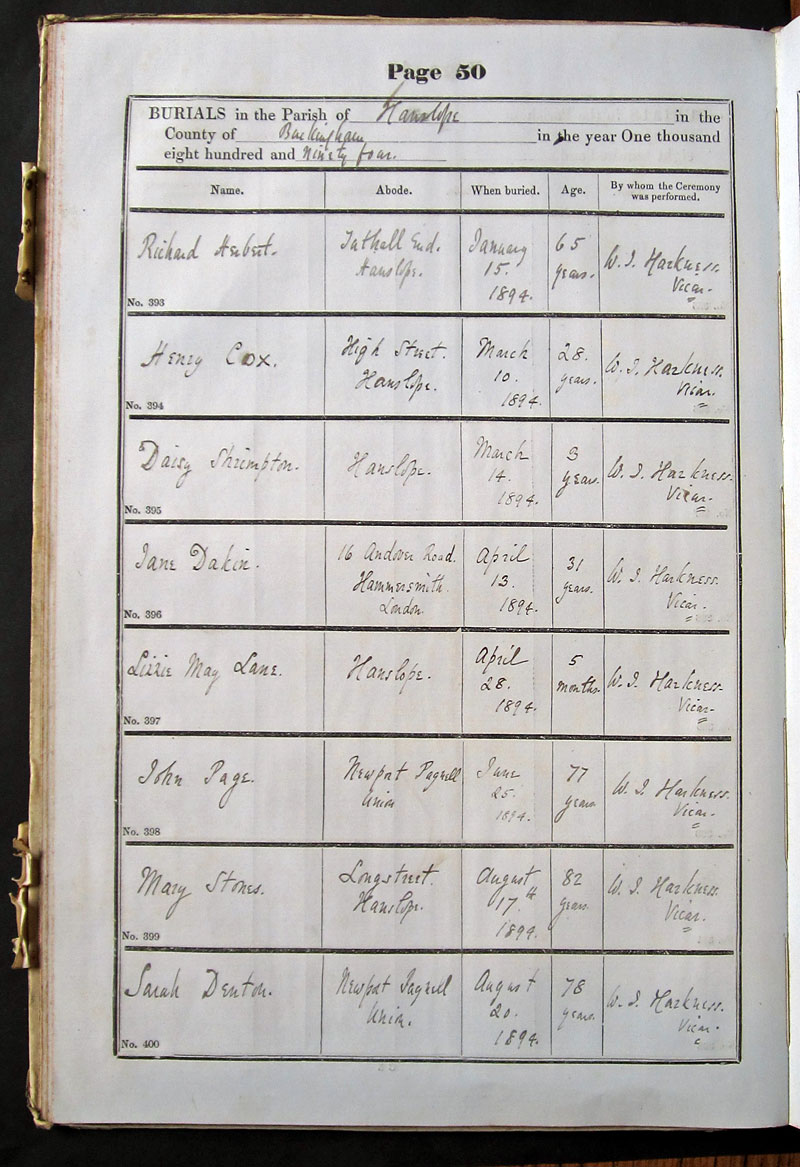 Page 50
BURIALS in the Parish of Hanslope in the
County of Buckingham in the year One thousand
eight hundred and Ninety four.
Name. Abode. When buried. Age. By whom the Ceremony was performed.
Richard Herbert. Tathall End. January 65 W. J. Harkness.
Hanslope. 15. years. Vicar.
No. 393 1894.
Henry Cox. High Street. March 28. W. J. Harkness.
Hanslope. 10. years. Vicar.
No. 394 1894.
Daisy Shrimpton. Hanslope. March 3 W. J. Harkness.
14. years. Vicar.
No. 395 1894.
Jane Dakin. 16 Andover Road. April 31 W. J. Harkness.
Hammersmith. 13. years. Vicar.
No. 396 London. 1894.
Lizzie May Lane. Hanslope. April 5 W. J. Harkness.
28. months. Vicar.
No. 397 1894.
John Page. Newport Pagnell June 77 W. J. Harkness.
Union 25. years Vicar.
No. 398 1894.
Mary Stones. Longstreet. August 82 W. J. Harkness.
Hanslope. 17.th years. Vicar.
No. 399 1894.
Sarah Denton. Newport Pagnell August 78 W. J. Harkness.
Union. 20. years. Vicar.
No. 400 1894.